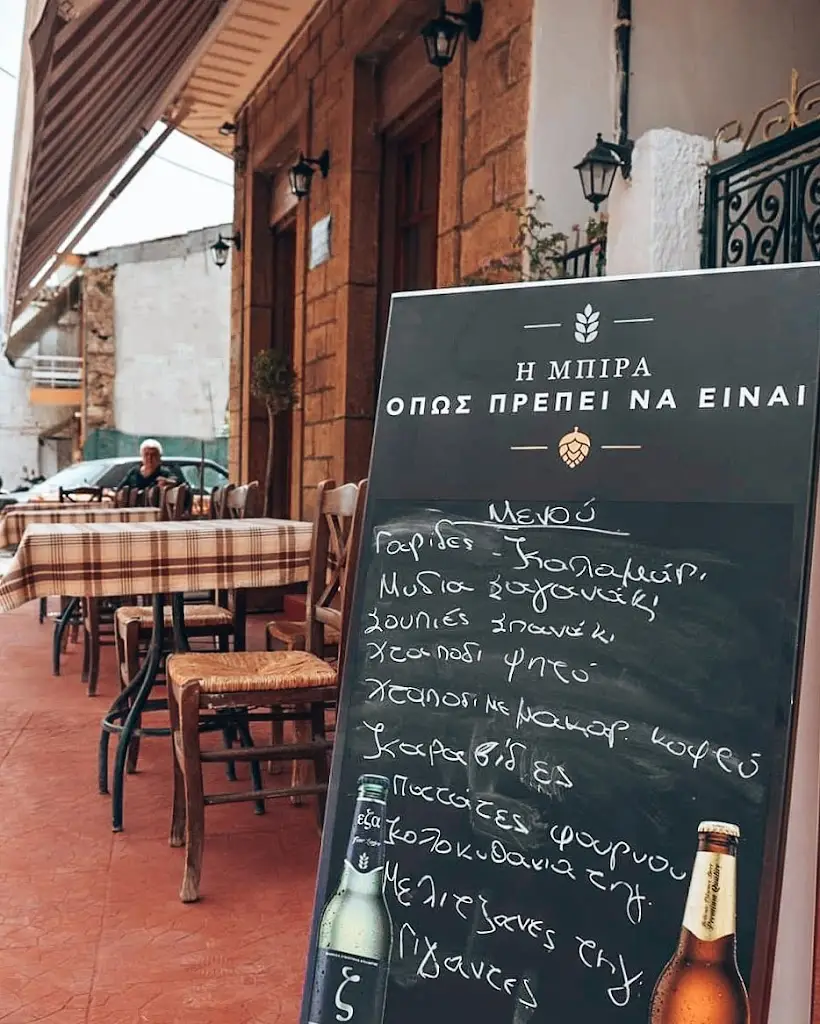 Η ΜΠΙΡΑ
ΟΠΩΣ ΠΡΕΠΕΙ ΝΑ ΕΙΝΑΙ
Μενού
Γαρίδες - Καλαμάρι
Μυδια Σαγανάκι
Σουπιές Σπανάκι
Χταποδι ψητό
Χταποδι με μακαρ. κοφτό
Καραβίδες
Πατάτες φουρνου
Κολοκυθακια τηγ.
Μελιτζανες τηγ.
Γιγαντες
εζα
ζ
Premium Quality